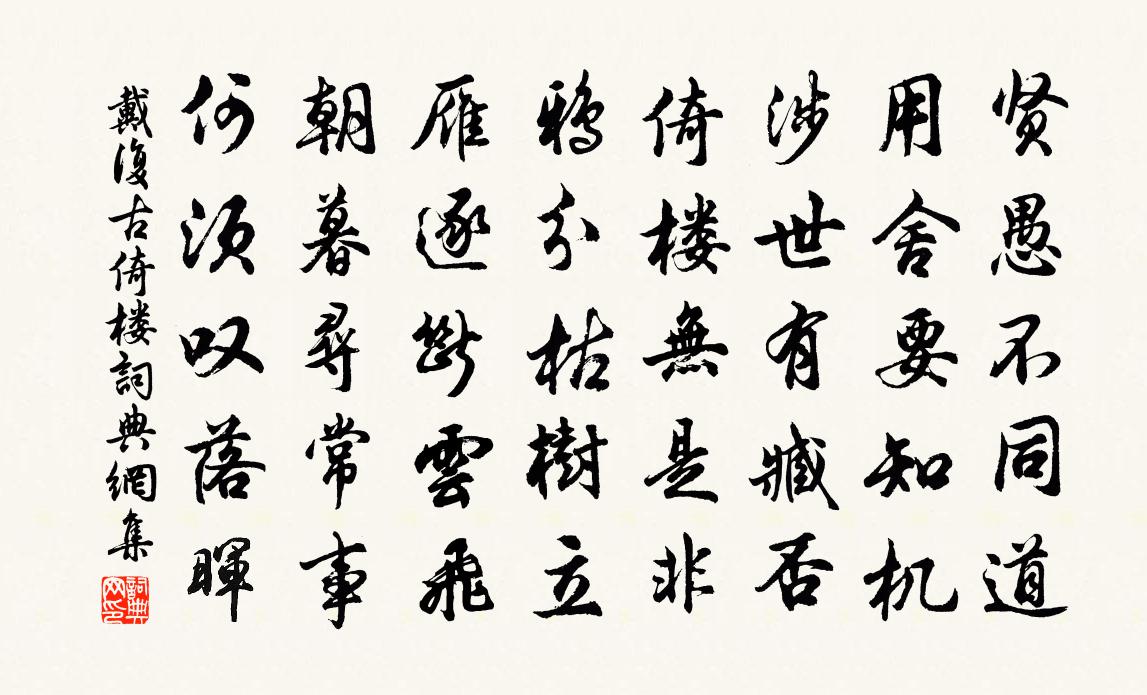 贤愚不同道
用舍要知机
涉世有臧否
倚楼無是非
鸦分枯樹立
雁逐断雲飛
朝暮尋常事
何须叹落暉
戴復古倚楼詞典網集
詞典网印